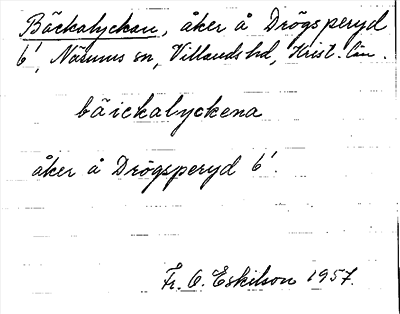 Bäckalyckan, åker å Drögsperyd
6¹, Närums sn, Villands hd, Krist. län.
bäickalyckena
åker å Drögsperyd 6¹.
Fr. O. Eskilson 1957.